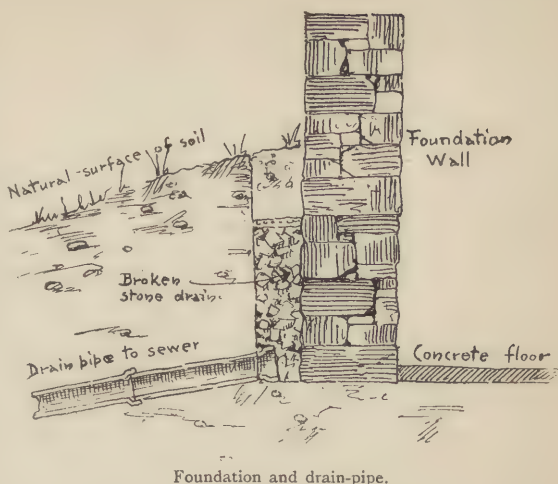 Natural surface of soil
Foundation
Wall
Broken
stone drain.
Drain pipe to sewer
Concrete floor
Foundation and drain-pipe.